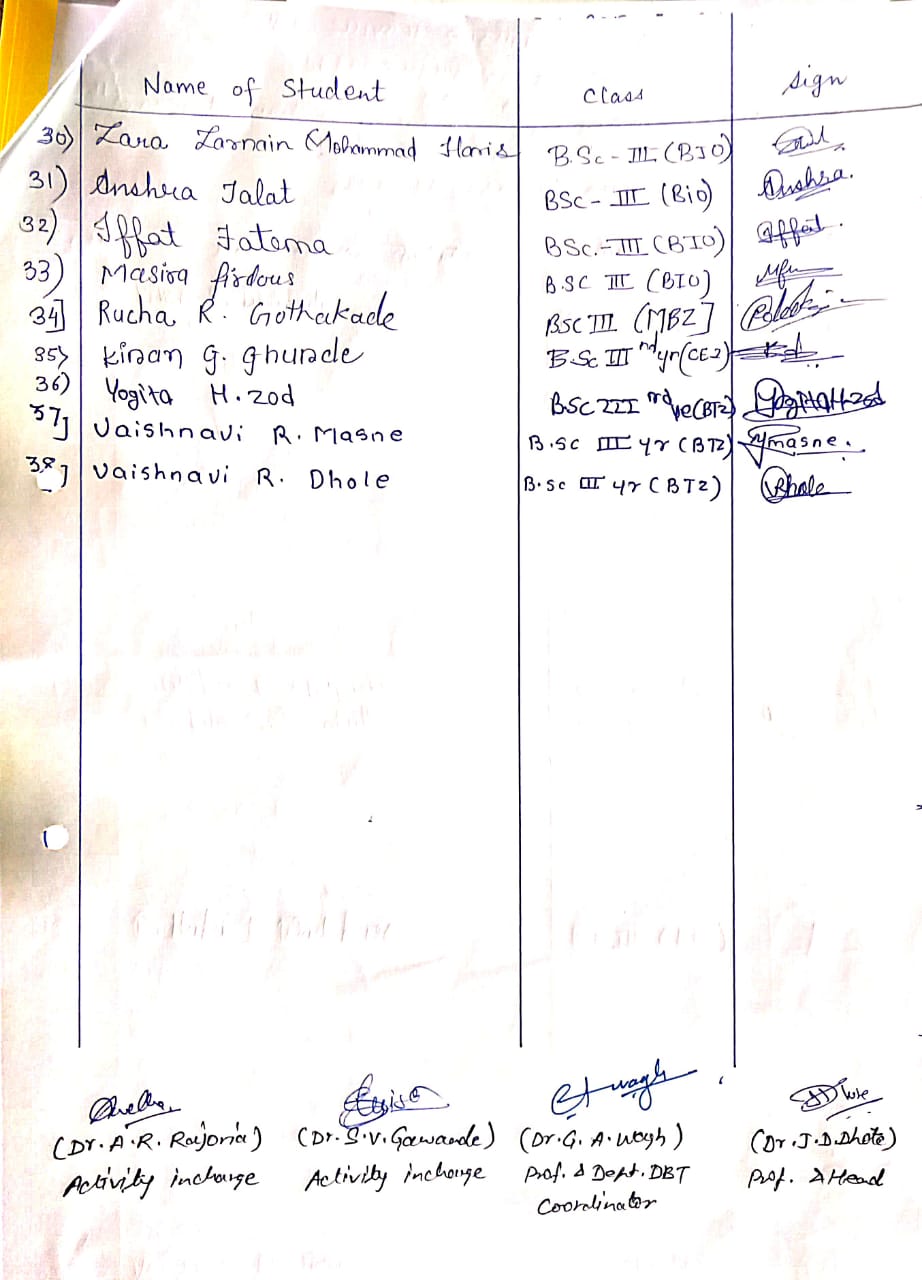 Name of Student Class Sign
30) Zara Zarnain Mohammad Haris B.Sc - III (BIO)
31) Anshra Talat BSc - III (Bio) Anshra.
32) Iffat Fatema BSc. - III (BIO) Iffat.
33) Masira firdous B.SC III (BIO)
34] Rucha R. Gothakade BSC III (MBZ]
35) Kiran G. Ghurade B.Sc III nd yr (CEZ)
36) Yogita H. Zod BSC III rd ye (BTZ) YogitaHZod
37] Vaishnavi R. Masne B.SC III yr (BTZ) masne.
38] Vaishnavi R. Dhole B.Sc III yr (BTZ) Dhole
(Dr. A. R. Rajoria) (Dr. S. V. Gawande) (Dr. G. A. Wagh) (Dr. J. D. Dhote)
Activity incharge Activity incharge Prof. & Dept. DBT Prof. & Head
Coordinator